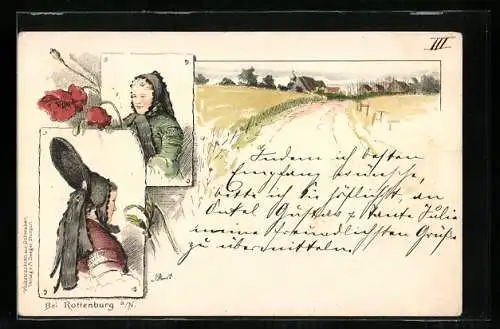 III
Indem ich besten
Empfang wünsche,
bitte ich Sie höflichst, an
Onkel Gustav & Tante Julie
meine freundlichsten Grüße
zu übermitteln
Bei Rottenburg a/N.